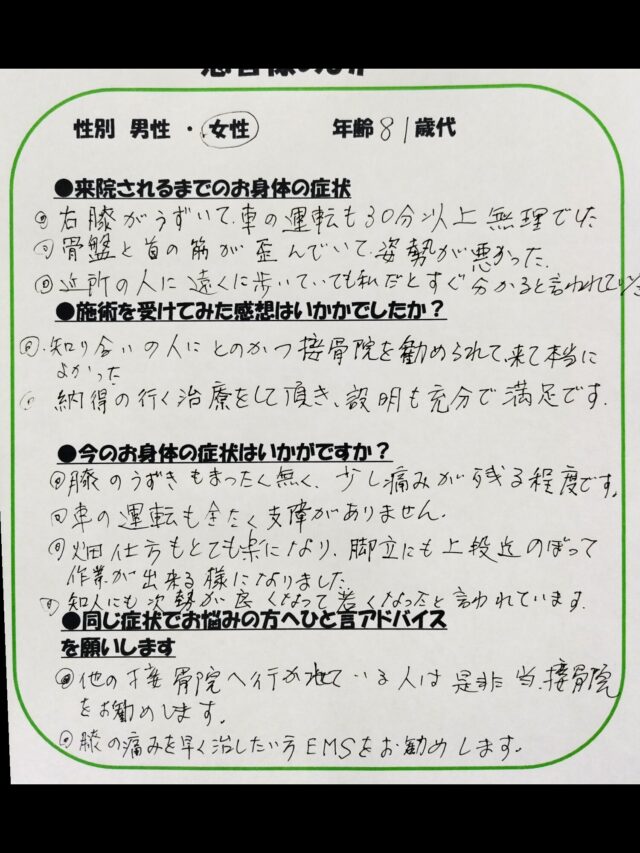 性別 男性 ・ 女性 年齢 81歳代
●来院されるまでのお身体の症状
右膝がうずいて、車の運転も30分以上無理でした
骨盤と首の筋が歪んでいて、姿勢が悪かった。
近所の人に遠くに歩いていても私だとすぐ分かると言われていた
●施術を受けてみた感想はいかかでしたか？
知り合いの人にとのかつ接骨院を勧められて、来て本当に
よかった
納得の行く治療をして頂き、説明も充分で満足です.
●今のお身体の症状はいかがですか？
膝のうずきもまったく無く、少し痛みが残る程度です。
車の運転も全たく支障がありません.
畑仕事もとても楽になり、脚立にも上段迄のぼって
作業が出来る様になりました.
知人にも姿勢が良くなって若くなったと言われています.
●同じ症状でお悩みの方へひと言アドバイス
を願いします
他の接骨院へ行かれている人は是非当接骨院
をお勧めします。
膝の痛みを早く治したい方EMSをお勧めします。